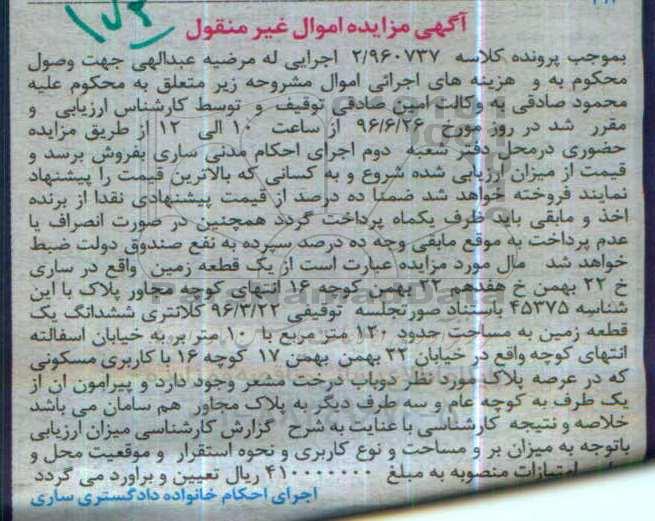 آگهی مزایده اموال غیر منقول
بموجب پرونده کلاسه ۲/۹۶۰۷۳۷ اجرایی له مرضیه عبدالهی جهت وصول
محکوم به و هزینه های اجرائی اموال مشروحه زیر متعلق به محکوم علیه
محمود صادقی به وکالت امین صادقی توقیف و توسط کارشناس ارزیابی و
مقرر شد در روز مورخ ۹۶/۶/۲۶ از ساعت ۱۰ الی ۱۲ از طریق مزایده
حضوری درمحل دفتر شعبه دوم اجرای احکام مدنی ساری بفروش برسد و
قیمت از میزان ارزیابی شده شروع و به کسانی که بالاترین قیمت را پیشنهاد
نمایند فروخته خواهد شد ضمنا ده درصد از قیمت پیشنهادی نقدا از برنده
اخذ و مابقی باید ظرف یکماه پرداخت گردد همچنین در صورت انصراف یا
عدم پرداخت به موقع مابقی وجه ده درصد سپرده به نفع صندوق دولت ضبط
خواهد شد مال مورد مزایده عبارت است از یک قطعه زمین واقع در ساری
خ ۲۲ بهمن خ هفدهم ۲۲ بهمن کوچه ۱۶ انتهای کوچه مجاور پلاک با این
شناسه ۴۵۳۷۵ باستناد صورتجلسه توقیفی ۹۶/۳/۲۲ کلانتری ششدانگ یک
قطعه زمین به مساحت حدود ۱۲۰ متر مربع با ۱۰ متر بر به خیابان اسفالته
انتهای کوچه واقع در خیابان ۲۲ بهمن بهمن ۱۷ کوچه ۱۶ با کاربری مسکونی
که در عرصه پلاک مورد نظر دوباب درخت مشعر وجود دارد و پیرامون آن از
یک طرف به کوچه عام و سه طرف دیگر به پلاک مجاور هم سامان می باشد
خلاصه و نتیجه کارشناسی با عنایت به شرح گزارش کارشناسی میزان ارزیابی
باتوجه به میزان بر و مساحت و نوع کاربری و نحوه استقرار و موقعیت محل و
امتیازات منصوبه به مبلغ ۴۱۰۰۰۰۰۰۰ ریال تعیین و برآورد می گردد
اجرای احکام خانواده دادگستری ساری